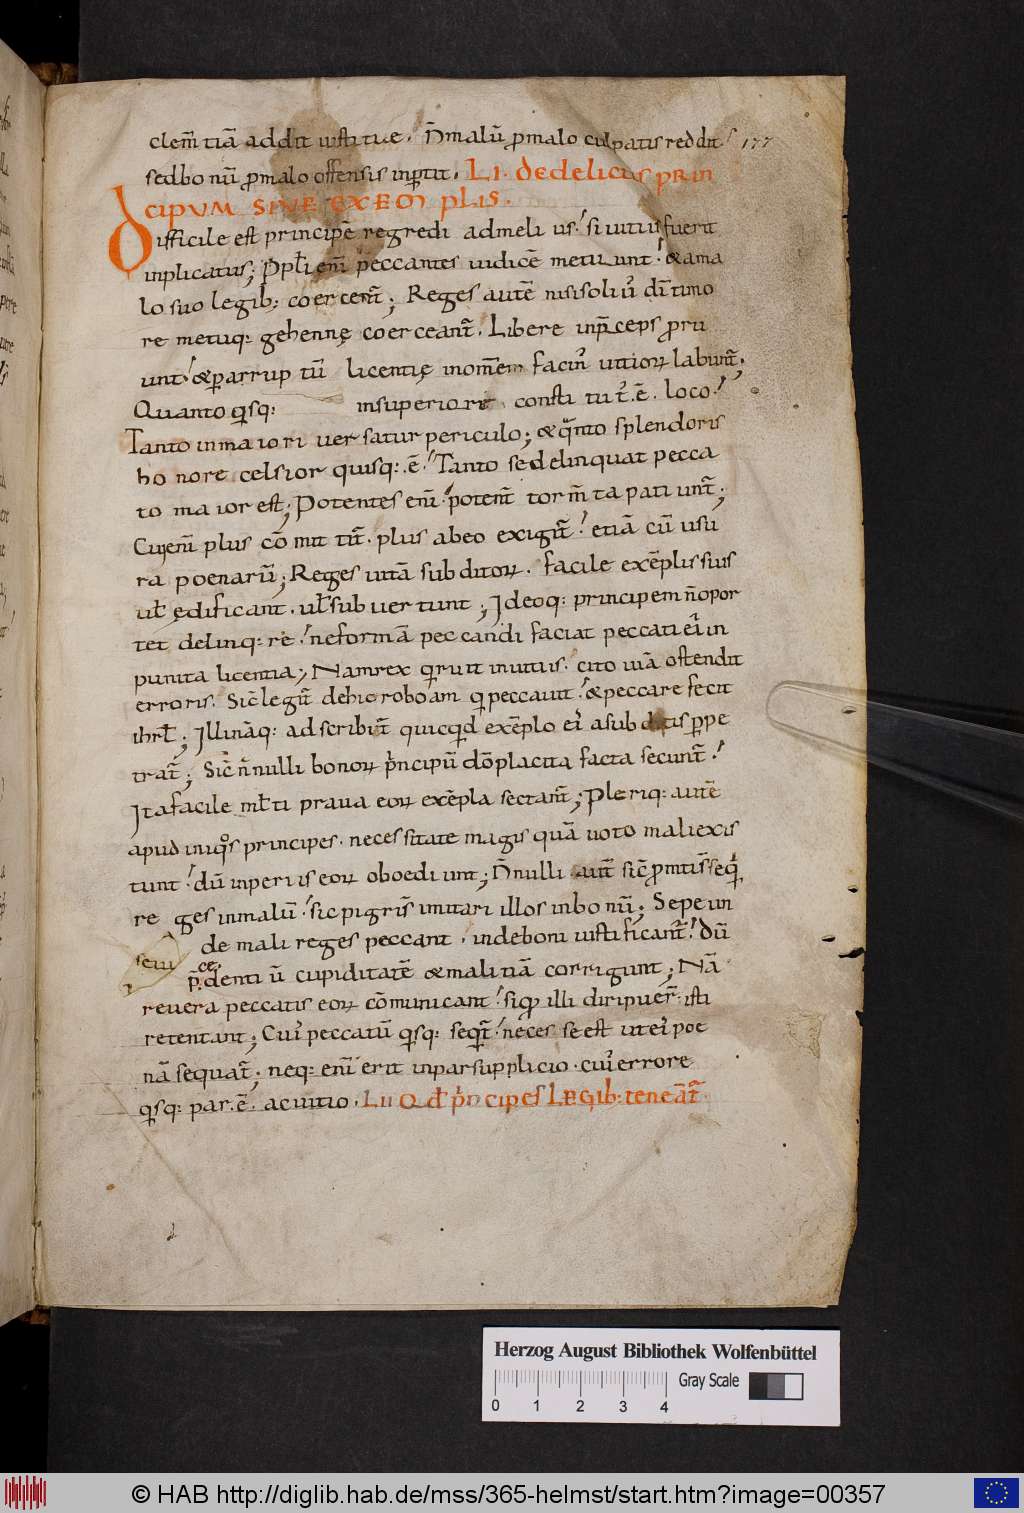 clem̄tiā addit iustitiae. N̄ malū ꝓ malo culpatis reddit. 177
sed bonū ꝓ malo offensis inꝑtit. LI. de delictis prin
cipum sive exemplis.
Difficile est principē regredi ad melius! si vitiis fuerit
inplicatus; Ppl̄i enī peccantes iudicē metuunt! & a ma
lo suo legib; coercent̄; Reges autē nisi soliꝰ dī timo
re metuq: gehennę coerceant̄. Libere in p̄ceps pro ru
unt! & ꝑ arruptū licentię in om̄em facinꝰ vitiorꝝ labunt̄;
Quanto qisq: in superiore constitutꝰ ē. loco!
Tanto in maiori uersatur periculo; & qanto splendoris
honore celsior quisq: ē! Tanto se delinquat pecca
to maior est; Potentes enī potent̄ torm̄ta patiunt̄;
Cui enī plus cōmittit̄. plus ab eo exigit̄! etiā cū usu
ra poenarū; Reges uitā subditorꝝ. facile exēplis suis
ul̄ ędificant. ul̄ subuertunt; Ideoq: principem ñ opor
tet delinq:re! ne formā peccandi faciat peccati ei in
punita licentia; Nam rex q ruit in uitiis. cito uiā ostendit
erroris. Sic̄ legit̄ de hieroboam q peccauit! & peccare fecit
ihrl̄; Illi nāq: adscribit̄ quicqd exēplo ei a subditis ꝑpe
trat̄; Sic̄ ñnulli bonorꝝ principū dō placita facta secunt̄!
Ita facile ml̄ti praua eorꝝ exēpla sectant̄; Pleriq: autē
apud iniqos principes. necessitate magis quā uoto mali exis
tunt! dū inperiis eorꝝ oboediunt; N̄nulli aut̄ sic̄ ꝓmti s̄ seq
re ges in malū! sic pigri s̄ imitari illos in bonū; Sepe un
de mali reges peccant. inde boni iustificant̄! dū
seui
ce.
p̄.dentiū cupiditatē & malitiā corrigunt; Nā
reuera peccatis eorꝝ cōmunicant! si qd illi diripuer̄. isti
retentant; Cuiꝰ peccatū qisq: seqit̄! necesse est ut eiꝰ poe
nā sequat̄; neq: enī erit inpar supplicio. cuiꝰ errore
qisq: par ē. ac uitio. LII Qd principes legib: teneāt̄.
Herzog August Bibliothek Wolfenbüttel
Gray Scale
0 1 2 3 4
© HAB http://diglib.hab.de/mss/365-helmst/start.htm?image=00357